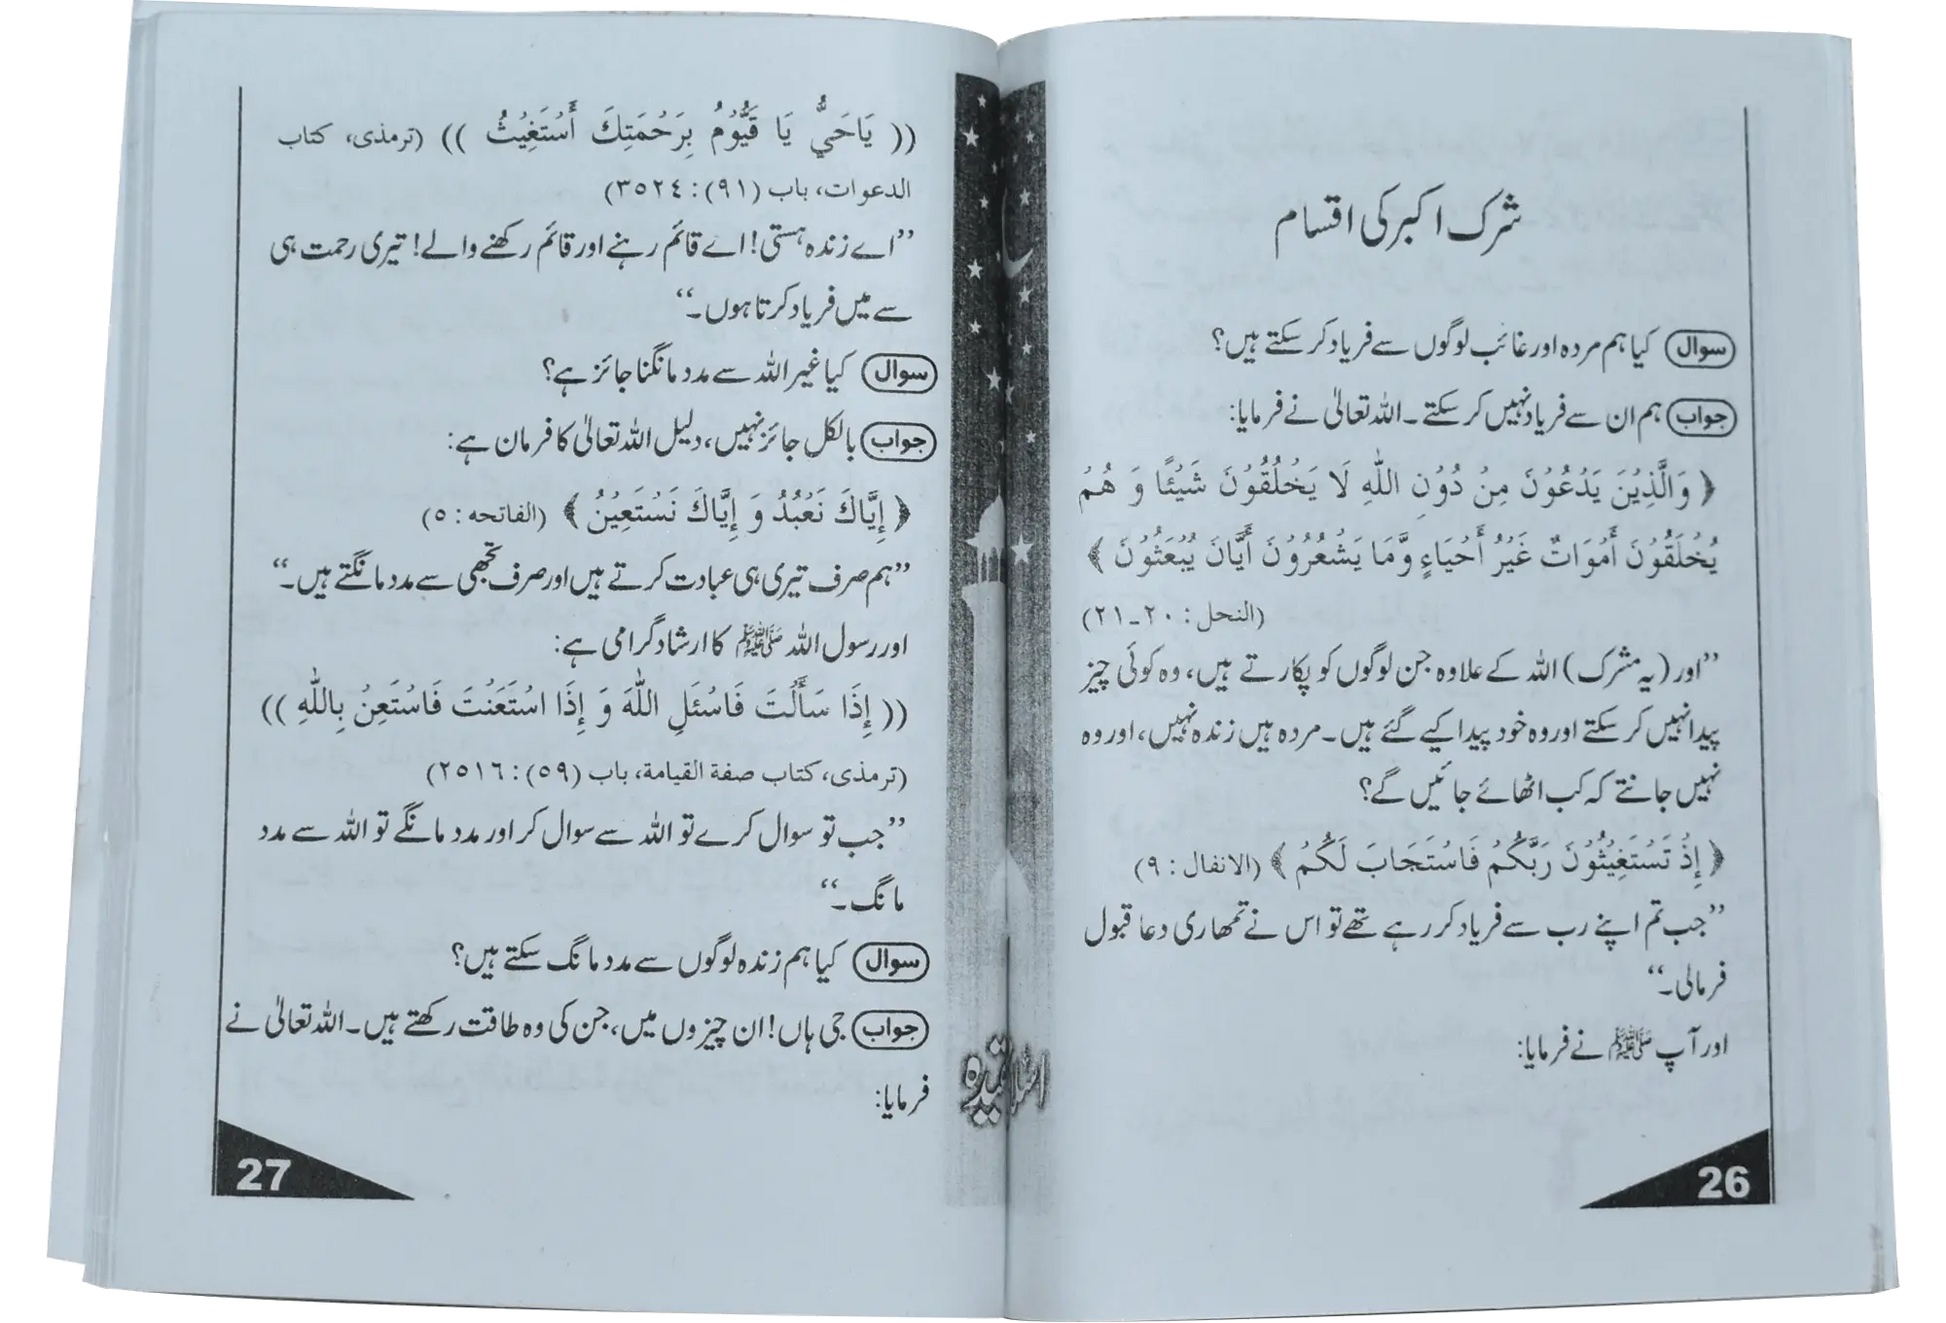 شرک اکبر کی اقسام
سوال کیا ہم مردہ اور غائب لوگوں سے فریاد کر سکتے ہیں؟
جواب ہم ان سے فریاد نہیں کر سکتے۔ اللہ تعالیٰ نے فرمایا:
﴿ وَالَّذِيْنَ يَدْعُوْنَ مِنْ دُوْنِ اللّٰهِ لَا يَخْلُقُوْنَ شَيْئًا وَ هُمْ
يُخْلَقُوْنَ أَمْوَاتٌ غَيْرُ أَحْيَاءٍ وَّمَا يَشْعُرُوْنَ أَيَّانَ يُبْعَثُوْنَ ﴾
(النحل : ٢٠ ـ ٢١)
”اور (یہ مشرک) اللہ کے علاوہ جن لوگوں کو پکارتے ہیں، وہ کوئی چیز
پیدا نہیں کر سکتے اور وہ خود پیدا کیے گئے ہیں۔ مردہ ہیں زندہ نہیں، اور وہ
نہیں جانتے کہ کب اٹھائے جائیں گے؟
﴿ إِذْ تَسْتَغِيْثُوْنَ رَبَّكُمْ فَاسْتَجَابَ لَكُمْ ﴾ (الانفال : ٩)
”جب تم اپنے رب سے فریاد کر رہے تھے تو اس نے تمھاری دعا قبول
فرمالی۔“
اور آپ ﷺ نے فرمایا:
26
(( يَاحَيُّ يَا قَيُّوْمُ بِرَحْمَتِكَ أَسْتَغِيْثُ )) (ترمذی، کتاب
الدعوات، باب (٩١) : ٣٥٢٤)
”اے زندہ ہستی! اے قائم رہنے اور قائم رکھنے والے! تیری رحمت ہی
سے میں فریاد کرتا ہوں۔“
سوال کیا غیر اللہ سے مدد مانگنا جائز ہے؟
جواب بالکل جائز نہیں، دلیل اللہ تعالیٰ کا فرمان ہے:
﴿ إِيَّاكَ نَعْبُدُ وَ إِيَّاكَ نَسْتَعِيْنُ ﴾ (الفاتحه : ٥)
”ہم صرف تیری ہی عبادت کرتے ہیں اور صرف تجھی سے مدد مانگتے ہیں۔“
اور رسول اللہ ﷺ کا ارشاد گرامی ہے:
(( إِذَا سَأَلْتَ فَاسْئَلِ اللّٰهَ وَ إِذَا اسْتَعَنْتَ فَاسْتَعِنْ بِاللّٰهِ ))
(ترمذی، کتاب صفة القيامة، باب (٥٩) : ٢٥١٦)
”جب تو سوال کرے تو اللہ سے سوال کر اور مدد مانگے تو اللہ سے مدد
مانگ۔“
سوال کیا ہم زندہ لوگوں سے مدد مانگ سکتے ہیں؟
جواب جی ہاں! ان چیزوں میں، جن کی وہ طاقت رکھتے ہیں۔ اللہ تعالیٰ نے
فرمایا:
27